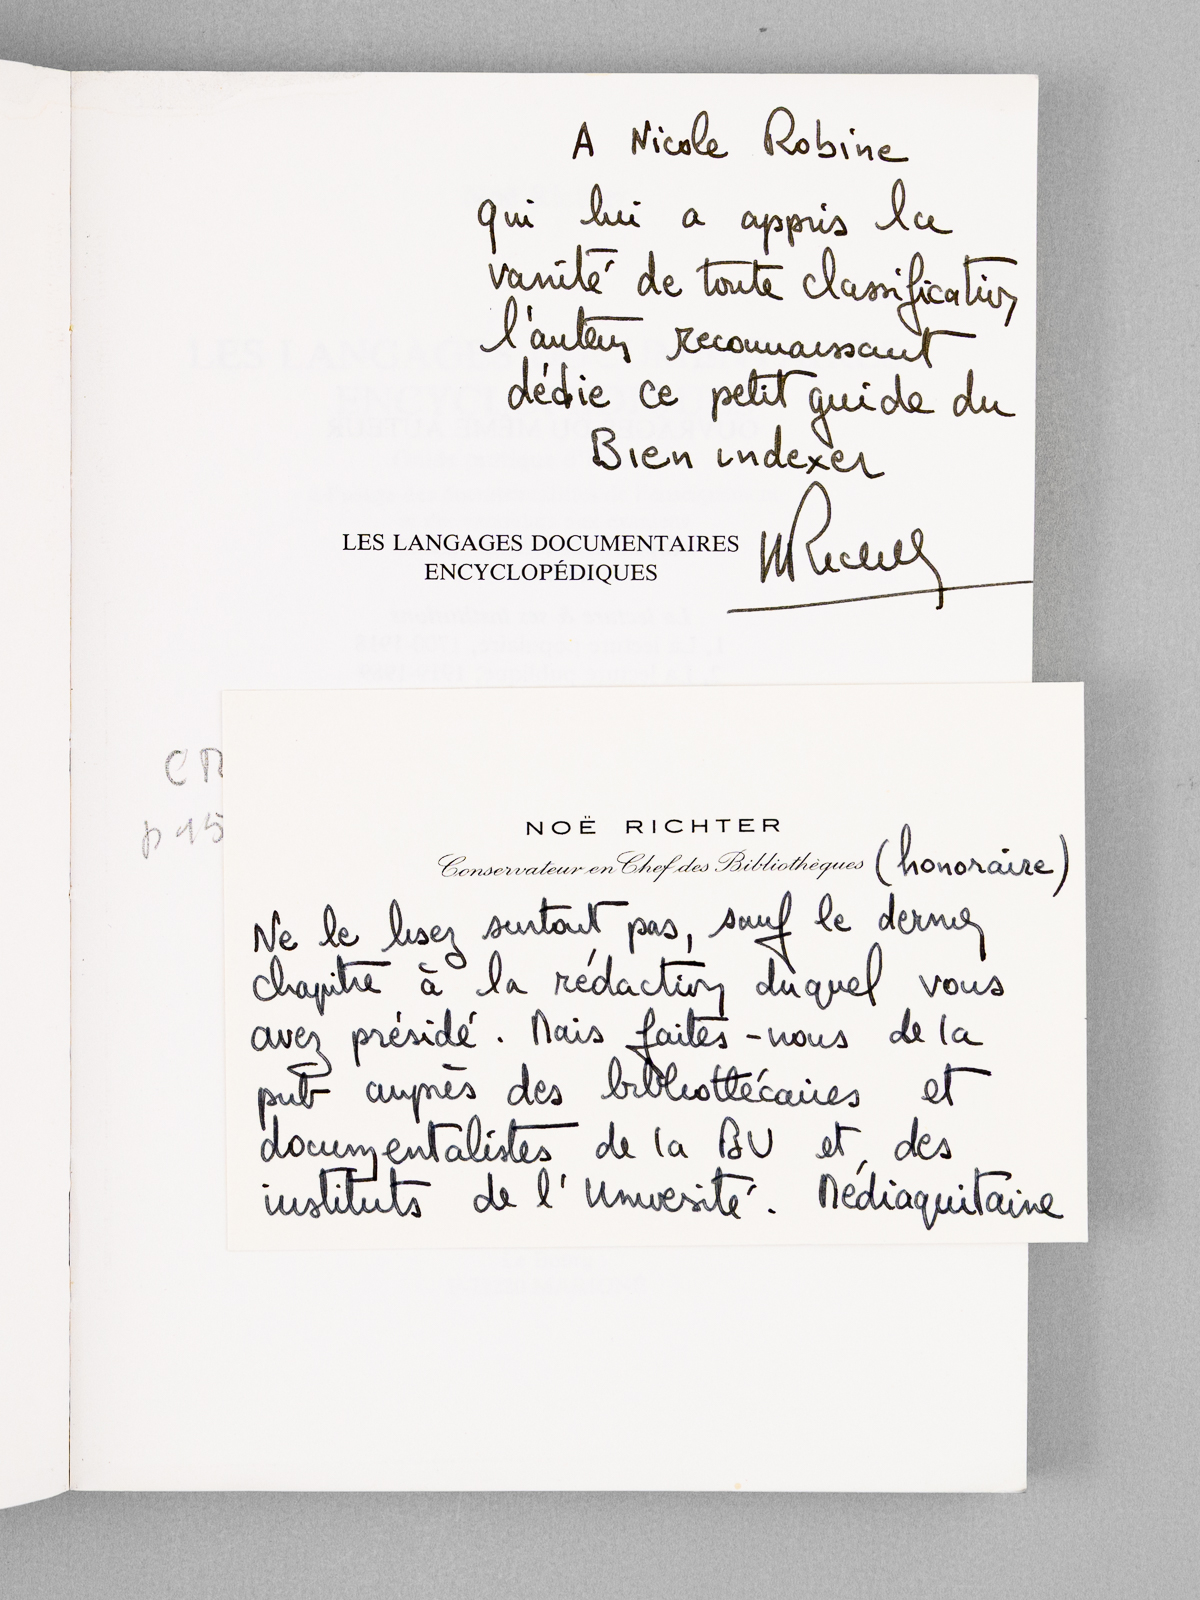 A Nicole Robine
qui lui a appris la
vanité de toute classification
l'auteur reconnaissant
dédie ce petit guide du
Bien indexer
LES LANGAGES DOCUMENTAIRES
ENCYCLOPÉDIQUES
NOË RICHTER
Conservateur en Chef des Bibliothèques (honoraire)
Ne le lisez surtout pas, sauf le dernier
chapitre à la rédaction duquel vous
avez présidé. Mais faites-nous de la
pub auprès des bibliothécaires et
documentalistes de la BU et des
instituts de l'Université. Médiaquitaine